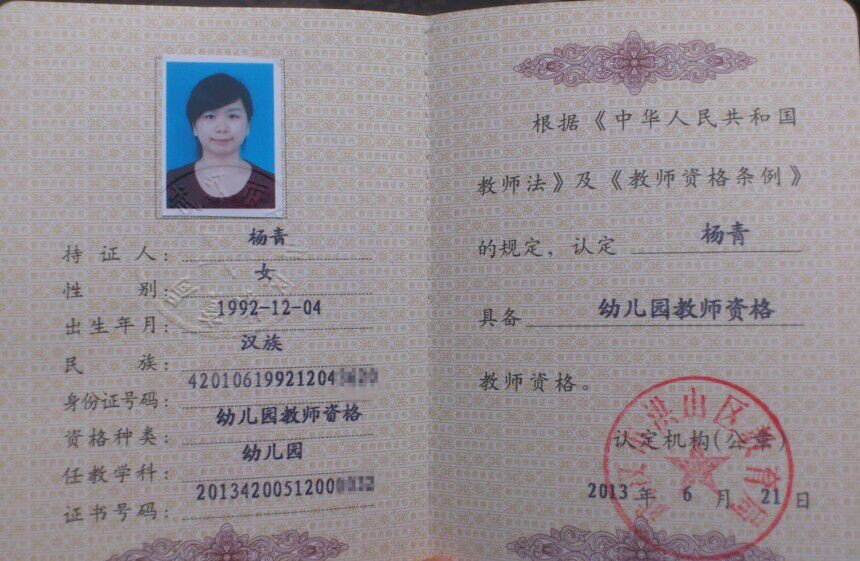 持证人：杨青
性别：女
出生年月：1992-12-04
民族：汉族
身份证号码：42010619921204
资格种类：幼儿园教师资格
任教学科：幼儿园
证书号码：20134200512000
根据《中华人民共和国
教师法》及《教师资格条例》
的规定，认定 杨青
具备 幼儿园教师资格
教师资格。
洪山区教育局
认定机构(公章)
2013 年 6 月 21 日